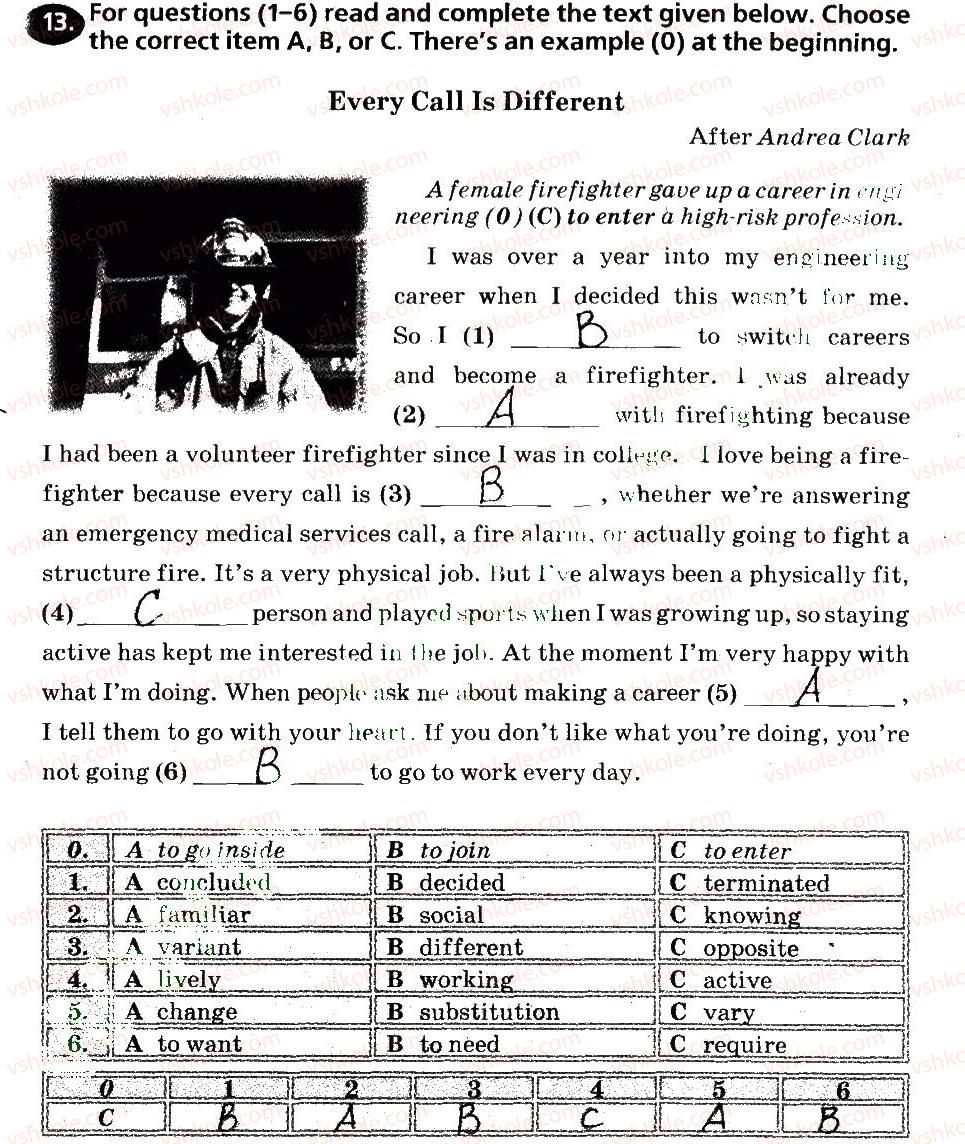 13. For questions (1–6) read and complete the text given below. Choose
the correct item A, B, or C. There's an example (0) at the beginning.
Every Call Is Different
After Andrea Clark
A female firefighter gave up a career in engi
neering (0) (C) to enter a high-risk profession.
I was over a year into my engineering
career when I decided this wasn't for me.
So I (1) B to switch careers
and become a firefighter. I was already
(2) A with firefighting because
I had been a volunteer firefighter since I was in college. I love being a fire-
fighter because every call is (3) B , whether we're answering
an emergency medical services call, a fire alarm, or actually going to fight a
structure fire. It's a very physical job. But I've always been a physically fit,
(4) C person and played sports when I was growing up, so staying
active has kept me interested in the job. At the moment I'm very happy with
what I'm doing. When people ask me about making a career (5) A ,
I tell them to go with your heart. If you don't like what you're doing, you're
not going (6) B to go to work every day.
0. A to go inside B to join C to enter
1. A concluded B decided C terminated
2. A familiar B social C knowing
3. A variant B different C opposite
4. A lively B working C active
5. A change B substitution C vary
6. A to want B to need C require
0 1 2 3 4 5 6
C B A B C A B
vshkole.com